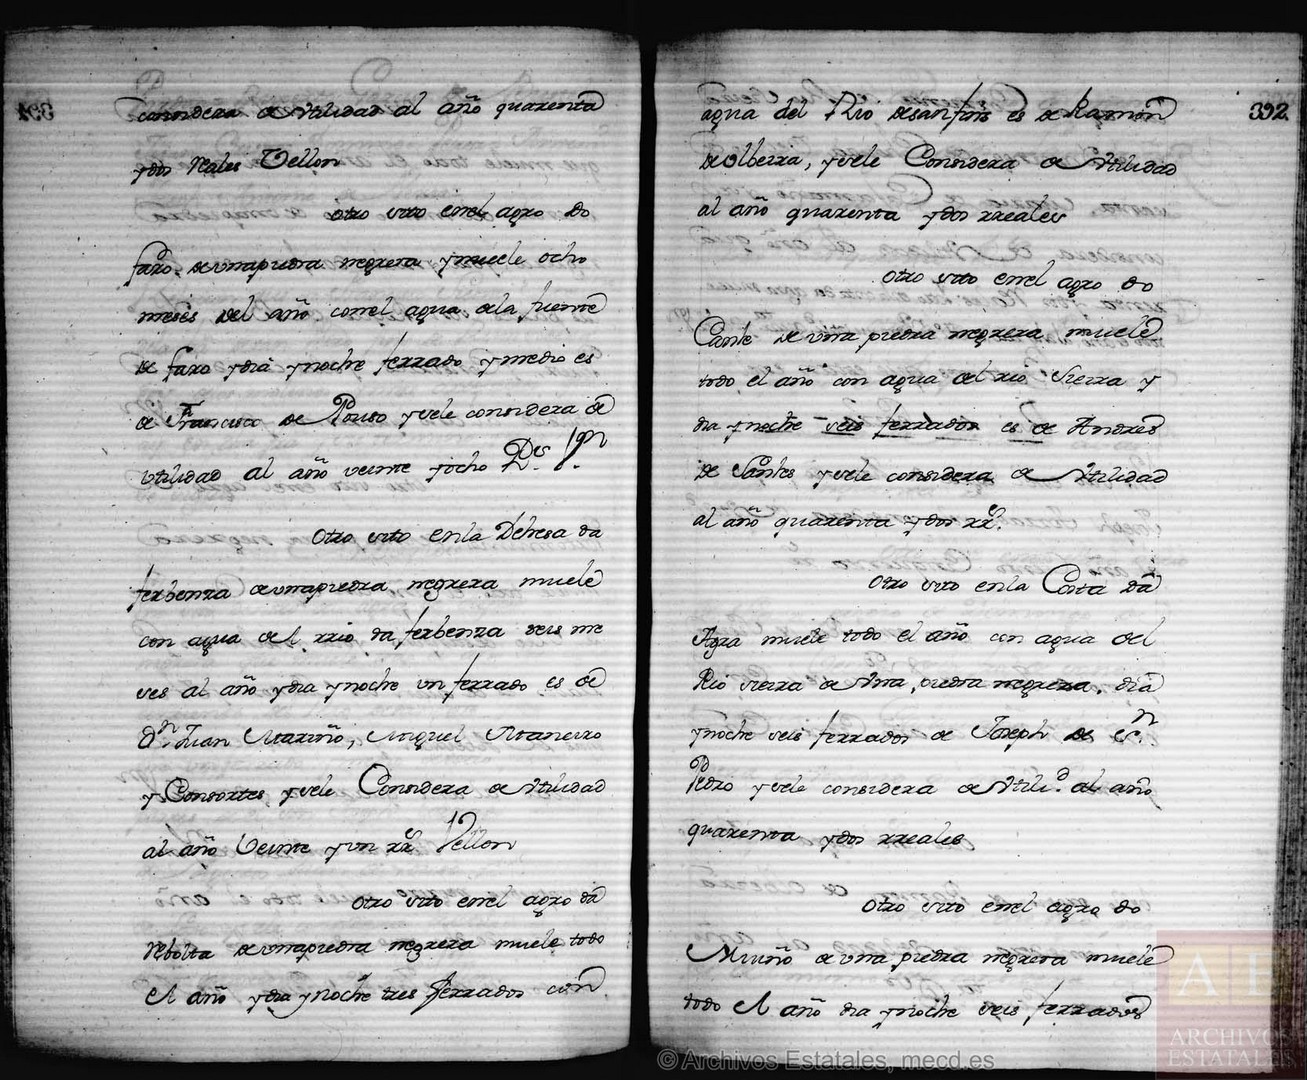 considera de Utilidad al año quarenta
ydos Reales Vellon
otro sito enel agro do
faro, de unapiedra negrera ymuele ocho
meses del año conel agua dela fuente
de faro ydia ynoche ferrado ymedio es
de Francisco de Pouso ysele considera de
Utilidad al año veinte yocho Rs. Vn.
Otro sito enla Dehesa da
ferbenza de unapiedra negrera muele
con agua del rrio da ferbenza seis me
ses al año ydia ynoche un ferrado es de
Dn. Juan Mariño, Miguel Maneiro
y Consortes ysele Considera de Utilidad
al año Veinte yun rr. Vellon
Otro sito enel agro da
Rebolta de unapiedra negrera muele todo
el año ydia ynoche tres ferrados con
392.
agua del Rio de es de Ramon
de olbeira, ysele Considera de Utilidad
al año quarenta ydos rreales
Otro sito enel agro do
Cante de una piedra negrera muele
todo el año con agua del rio Sierra y
dia ynoche seis ferrados es de Andres
de Santes ysele considera de Utilidad
al año quarenta ydos rr.
Otro sito enla Costa da
Agra muele todo el año con agua del
Rio sierra de Una piedra negrera, dia
ynoche seis ferrados de Joseph de Sn.
Pedro ysele considera de Utilid. al año
quarenta ydos rreales
Otro sito enel agro do
Muiño de una piedra negrera muele
todo el año dia ynoche seis ferrados
© Archivos Estatales, mecd.es
A E
ARCHIVOS
ESTATALES